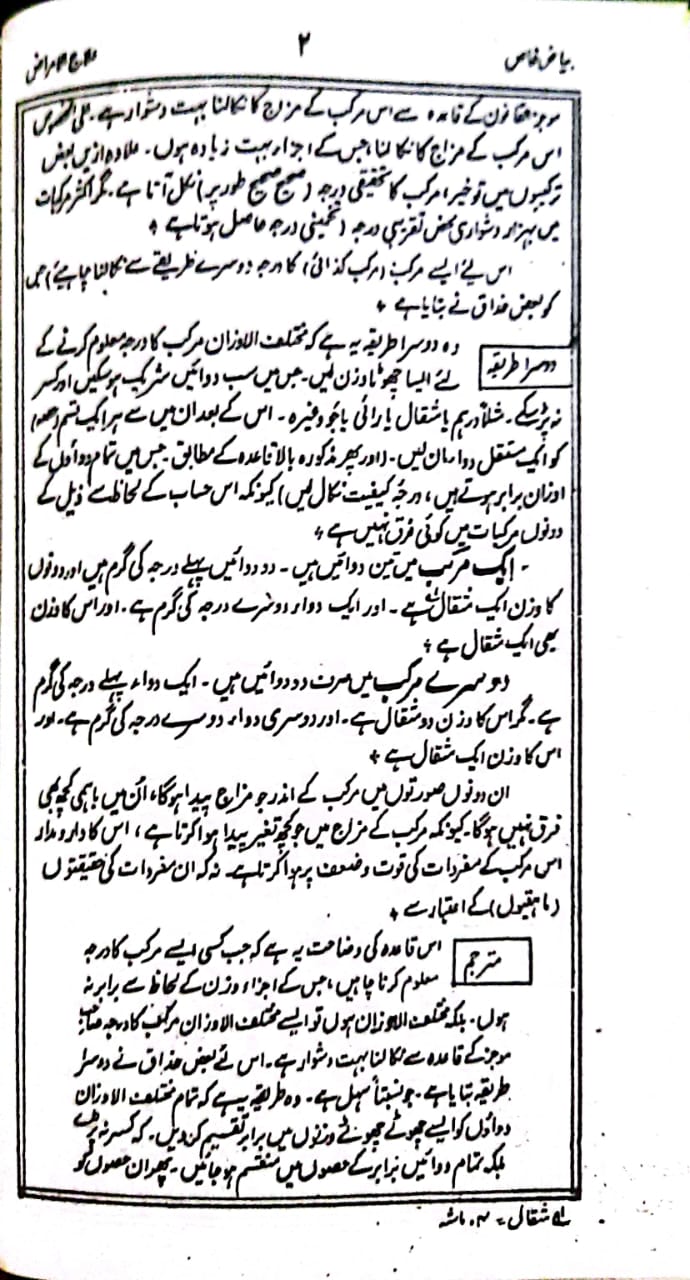 بیاض خاص ۲ علاج الامراض
موجز القانون کے قاعدہ سے اس مرکب کے مزاج کا نکالنا بہت دشوار ہے۔ علی الخصوص
اس مرکب کے مزاج کا نکالنا، جس کے اجزاء بہت زیادہ ہوں۔ علاوہ ازیں بعض
ترکیبوں میں تو خیر، مرکب کا تحقیقی درجہ (صحیح صحیح طور پر) نکل آتا ہے۔ مگر اکثر مرکبات
میں بہزار دشواری محض تقریبی درجہ (تخمینی درجہ) حاصل ہوتا ہے ٭
اس لئے ایسے مرکب (مرکب کذائی) کا درجہ دوسرے طریقے سے نکالنا چاہیئے، جس
کو بعض حذاق نے بتایا ہے ٭
دوسرا طریقہ
وہ دوسرا طریقہ یہ ہے کہ مختلف الاوزان مرکب کا درجہ معلوم کرنے کے
لئے ایسا چھوٹا وزن لیں۔ جس میں سب دوائیں شریک ہو سکیں اور کسر
نہ پڑ سکے۔ مثلاً درہم یا مثقال یا رائی یا جَو وغیرہ۔ اس کے بعد ان میں سے ہر ایک قسم (حصہ)
کو ایک مستقل دوا مان لیں۔ (اور پھر مذکورہ بالا قاعدہ کے مطابق۔ جس میں تمام دواؤں کے
اوزان برابر ہوتے ہیں، درجۂ کیفیت نکال لیں) کیونکہ اس حساب کے لحاظ سے ذیل کے
دونوں مرکبات میں کوئی فرق نہیں ہے ٭
۔ ایک مرکب میں تین دوائیں ہیں۔ دو دوائیں پہلے درجہ کی گرم ہیں اور دونوں
کا وزن ایک مثقال ہے۔ اور ایک دواء دوسرے درجہ کی گرم ہے۔ اور اس کا وزن
بھی ایک مثقال ہے ٭
دوسرے مرکب میں صرف دو دوائیں ہیں۔ ایک دواء پہلے درجہ کی گرم
ہے۔ مگر اس کا وزن دو مثقال ہے۔ اور دوسری دواء دوسرے درجہ کی گرم ہے۔ اور
اس کا وزن ایک مثقال ہے ٭
ان دونوں صورتوں میں مرکب کے اندر جو مزاج پیدا ہوگا، اُن میں باہمی کچھ بھی
فرق نہیں ہوگا۔ کیونکہ مرکب کے مزاج میں جو کچھ تغیر پیدا ہوا کرتا ہے، اس کا دارومدار
اس مرکب کے مفردات کی قوت وضعف پر ہوا کرتا ہے۔ نہ کہ ان مفردات کی حقیقتوں
(ماہیتوں) کے اعتبار سے ٭
مترجم
اس قاعدہ کی وضاحت یہ ہے کہ جب کسی ایسے مرکب کا درجہ
معلوم کرنا چاہیں، جس کے اجزاء وزن کے لحاظ سے برابر نہ
ہوں۔ بلکہ مختلف الاوزان ہوں تو ایسے مختلف الاوزان مرکب کا درجہ صاحب
موجز کے قاعدہ سے نکالنا بہت دشوار ہے۔ اس لئے بعض حذاق نے دوسرا
طریقہ بتایا ہے۔ جو نسبتاً سہل ہے۔ وہ طریقہ یہ ہے کہ تمام مختلف الاوزان
دواؤں کو ایسے چھوٹے چھوٹے وزنوں میں برابر تقسیم کر دیں۔ کہ کسر نہ پڑے
بلکہ تمام دوائیں برابر کے حصوں میں منقسم ہو جائیں۔ پھر ان حصوں کو
لہ مثقال = ۴ء۵ ماشہ